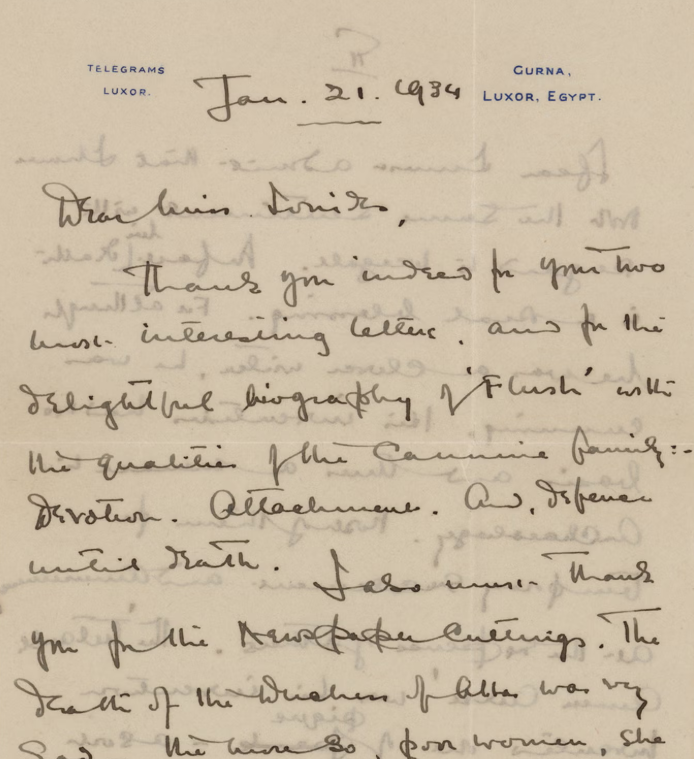 TELEGRAMS
LUXOR.
GURNA,
LUXOR, EGYPT.
Jan. 21. 1934
Dear Miss Ionides,
Thank you indeed for your two
most interesting letters, and for the
delightful biography of 'Flush' with
the qualities of the Cannine family:-
Devotion. Attachment. And, defence
until death. I also must thank
you for the Newspaper Cuttings. The
death of the Duchess of Alba was very
Sad. The more so, poor women, she